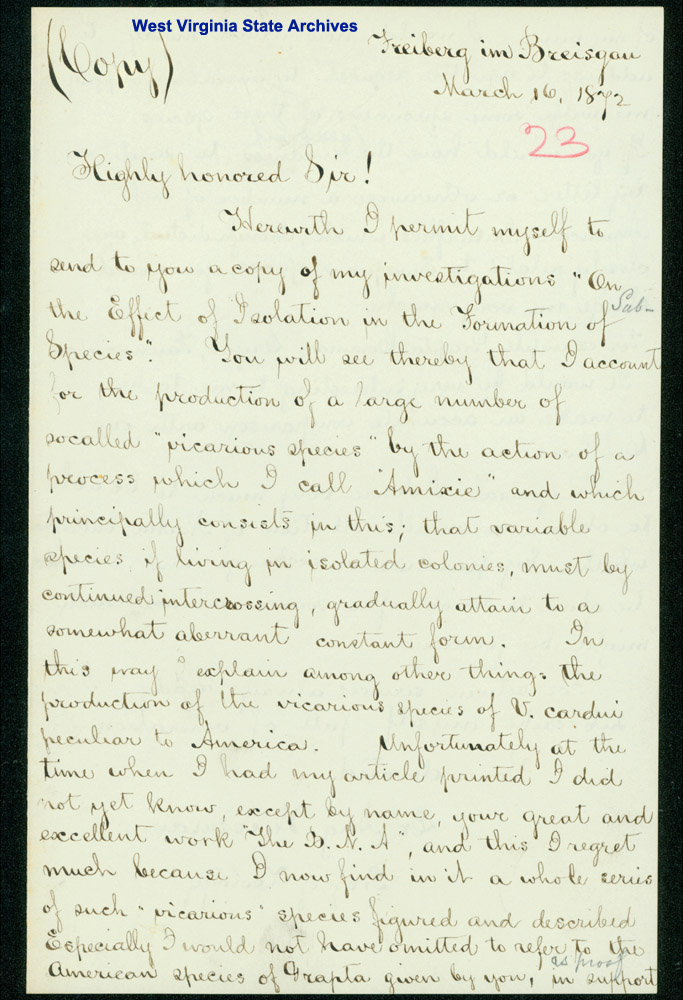 West Virginia State Archives
(Copy)
Freiberg im Breisgau
March 16, 1872
23
Highly honored Sir!
Herewith I permit myself to
send to you a copy of my investigations "On
the Effect of Isolation in the Formation of Sub-
Species". You will see thereby that I account
for the production of a large number of
socalled "vicarious species" by the action of a
process which I call "Amixie" and which
principally consists in this; that variable
species, if living in isolated colonies, must by
continued intercrossing, gradually attain to a
somewhat aberrant constant form. In
this way I explain among other things the
production of the vicarious species of V. cardui
peculiar to America. Unfortunately at the
time when I had my article printed I did
not yet know, except by name, your great and
excellent work "The B. N. A", and this I regret
much because I now find in it a whole series
of such "vicarious" species figured and described
Especially I would not have omitted to refer to the
as proof
American species of Grapta given by you, in support